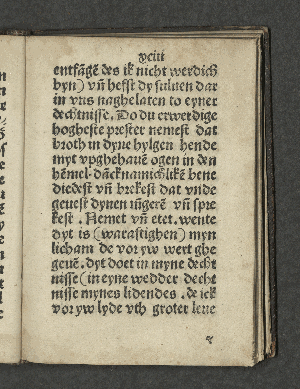 xciii
entfāgē des ik nicht werdich
byn) vn̄ hefst dy suluen dar
in vns naghelaten to eyner
dechtnisse. Do du erwerdige
hogheste prester nemest dat
broth in dyne hylgen hende
myt vpghehauē ogen in den
hēmel. dācknamichlikē bene
diedest vn̄ brekest dat vnde
geuest dynen iūgerē vn̄ spre
kest. Nemet vn̄ etet. wente
dyt is (warastighen) myn
licham de vor yw wert ghe
geuē. dyt doet in myne decht
nisse (in eyne wedder decht
nisse mynes lidendes. de ick
vor yw lyde vth groter leue